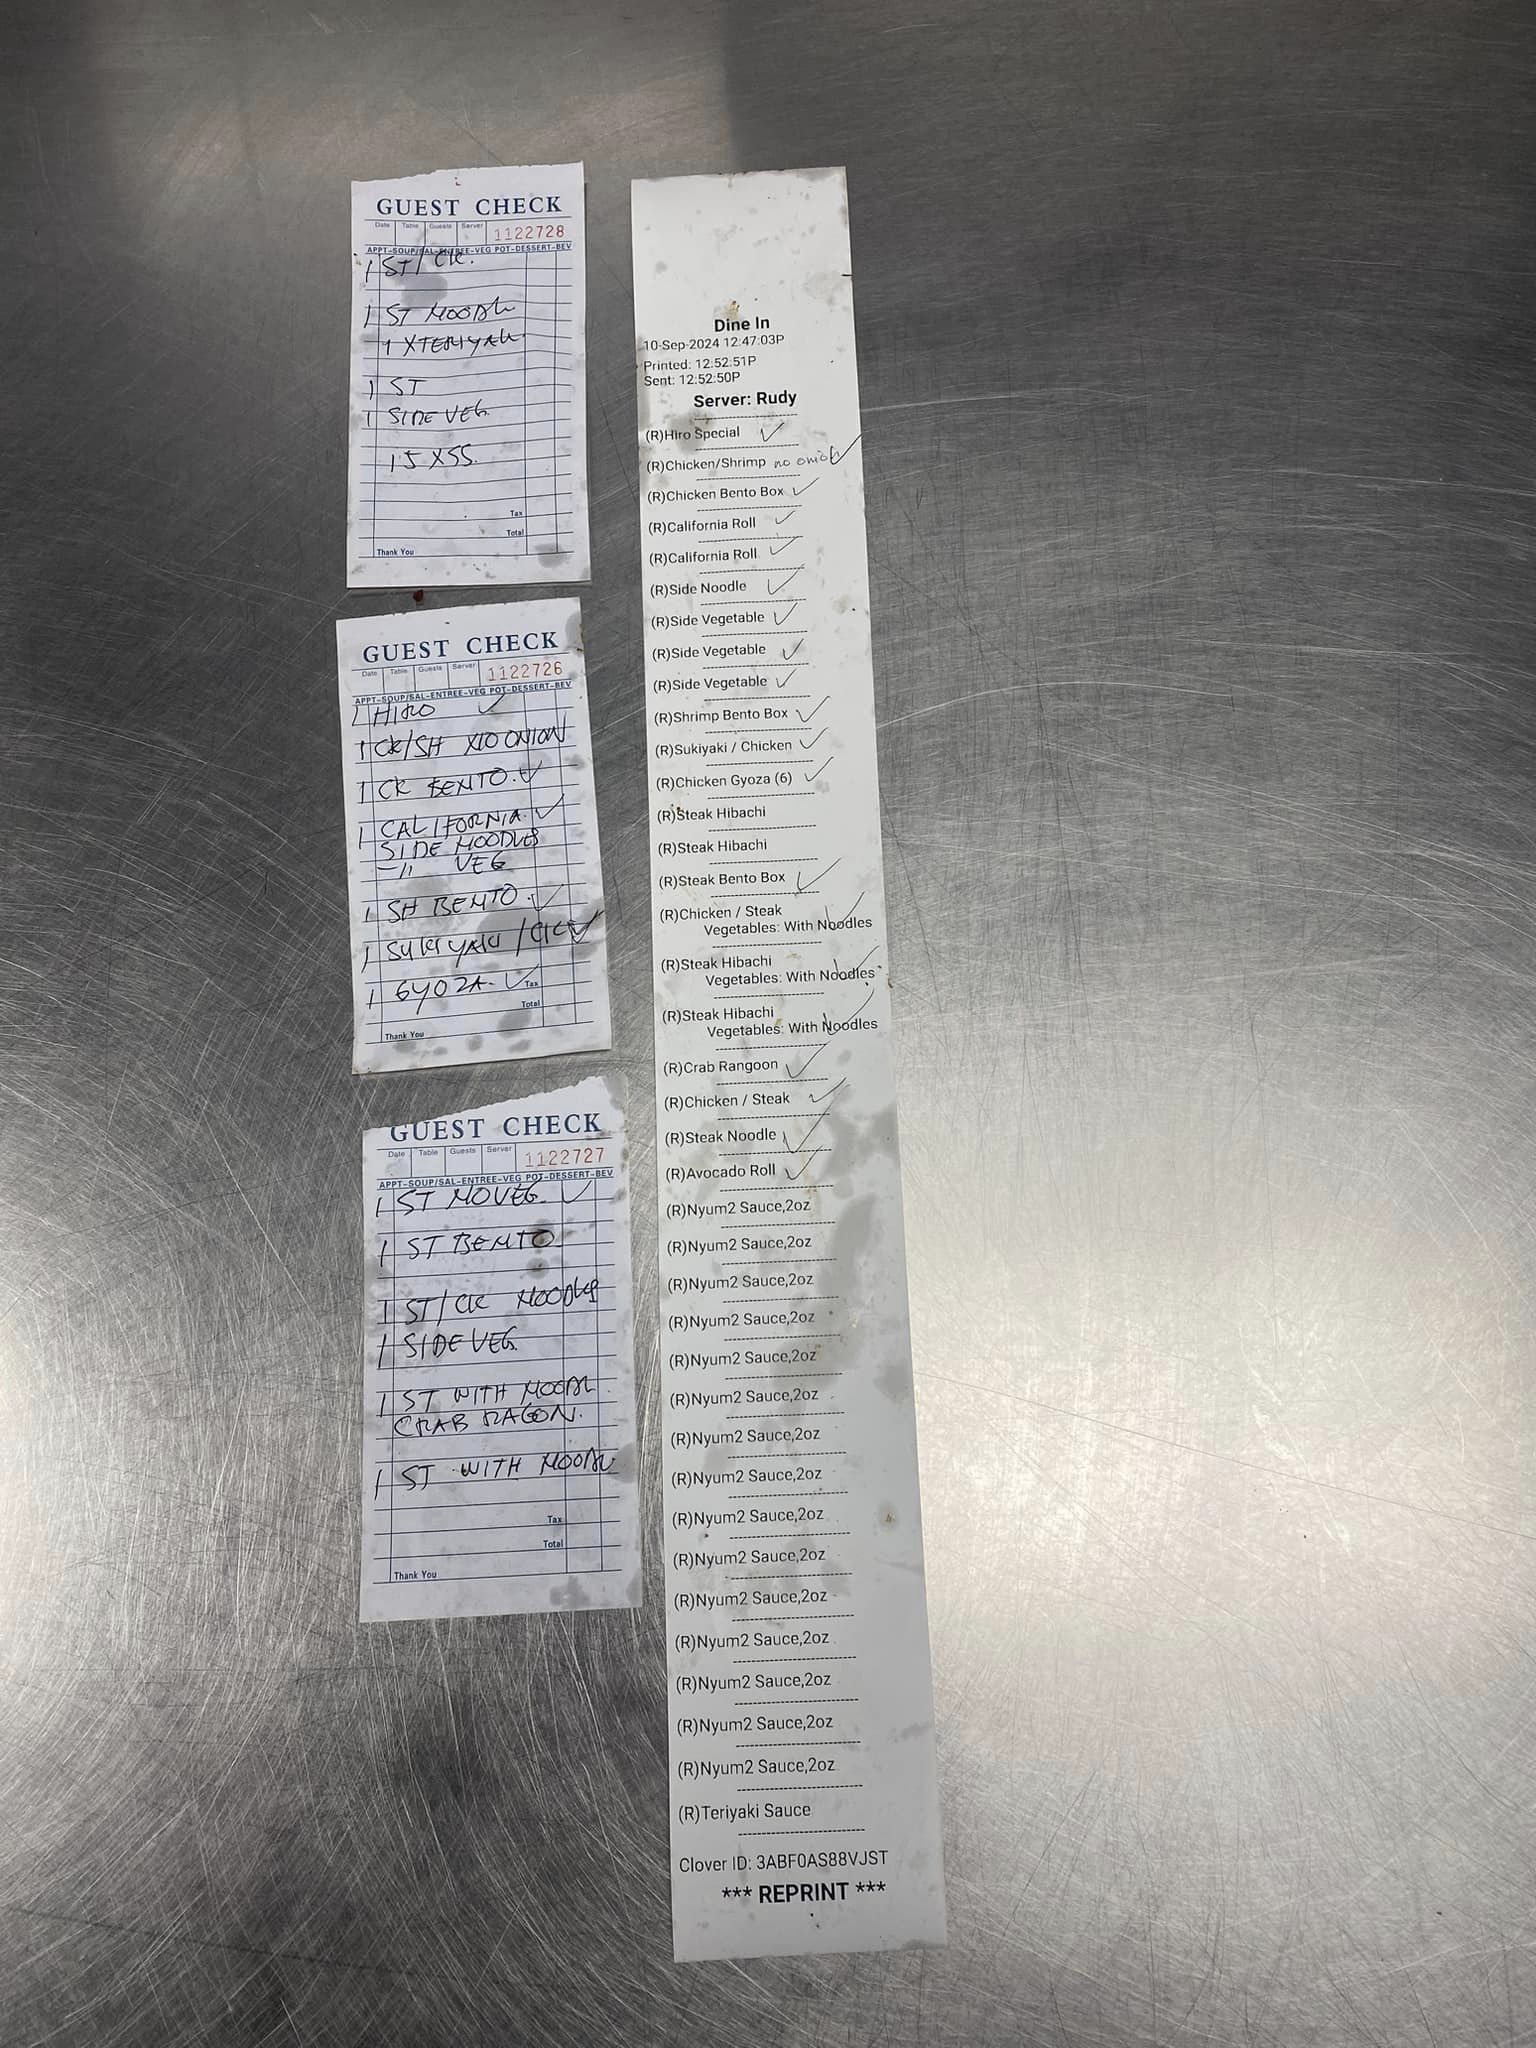 GUEST CHECK
Date Table Guests Server 1122728
APPT-SOUP/SAL-ENTREE-VEG POT-DESSERT-BEV
1 ST/CK.
1 ST NOODL
1 XTERIYAK
1 ST
1 SIDE VEG.
15 XSS.
Tax
Total
Thank You
GUEST CHECK
Date Table Guests Server 1122726
APPT-SOUP/SAL-ENTREE-VEG POT-DESSERT-BEV
1 HIRO
1 CK/SH NO ONION
1 CK BENTO.
1 CALIFORNIA
SIDE NOODLES
-11 VEG
1 SH BENTO.
1 SUKIYAKI /CK
1 GYOZA.
Tax
Total
Thank You
GUEST CHECK
Date Table Guests Server 1122727
APPT-SOUP/SAL-ENTREE-VEG POT-DESSERT-BEV
1 ST NO VEG.
1 ST BENTO
1 ST/CK NOODLES
1 SIDE VEG.
1 ST WITH NOODL.
CRAB RAGON.
1 ST WITH NOODL
Tax
Total
Thank You
Dine In
10-Sep-2024 12:47:03P
Printed: 12:52:51P
Sent: 12:52:50P
Server: Rudy
(R)Hiro Special
(R)Chicken/Shrimp no onion
(R)Chicken Bento Box
(R)California Roll
(R)California Roll
(R)Side Noodle
(R)Side Vegetable
(R)Side Vegetable
(R)Side Vegetable
(R)Shrimp Bento Box
(R)Sukiyaki / Chicken
(R)Chicken Gyoza (6)
(R)Steak Hibachi
(R)Steak Hibachi
(R)Steak Bento Box
(R)Chicken / Steak
Vegetables: With Noodles
(R)Steak Hibachi
Vegetables: With Noodles
(R)Steak Hibachi
Vegetables: With Noodles
(R)Crab Rangoon
(R)Chicken / Steak
(R)Steak Noodle
(R)Avocado Roll
(R)Nyum2 Sauce,2oz
(R)Nyum2 Sauce,2oz
(R)Nyum2 Sauce,2oz
(R)Nyum2 Sauce,2oz
(R)Nyum2 Sauce,2oz
(R)Nyum2 Sauce,2oz
(R)Nyum2 Sauce,2oz
(R)Nyum2 Sauce,2oz
(R)Nyum2 Sauce,2oz
(R)Nyum2 Sauce,2oz
(R)Nyum2 Sauce,2oz
(R)Nyum2 Sauce,2oz
(R)Nyum2 Sauce,2oz
(R)Nyum2 Sauce,2oz
(R)Nyum2 Sauce,2oz
(R)Teriyaki Sauce
Clover ID: 3ABF0AS88VJST
*** REPRINT ***